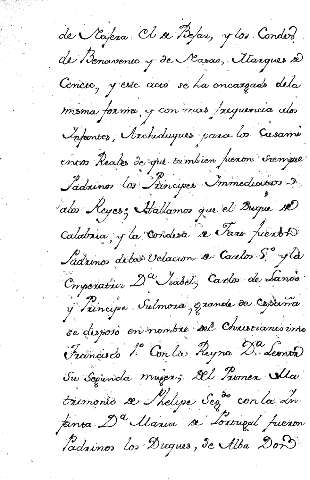 de Naxera El de Bejar, y los Condes
de Benavente y de Nasao, Marques de
Cenete, y este acto se ha encargado de la
misma forma, y con mas frequencia alos
Infantes, Archiduques, para los Casami
entos Reales de que tambien fueron siempre
Padrinos los Principes Immediatos
alos Reyes; Hallamos que el Duque de
Calabria, y la Condesa de Faro fueron
Padrinos dela Velacion de Carlos 5.º y la
Emperatriz D.ª Isabel; Carlos de Lanoi
y Principe Sulmona, grande de España
se desposó en nombre del Christianisimo
Francisco 1.º Con la Reyna D.ª Leonor
Su Segunda muger; Del Primer Ma
trimonio de Phelipe Seg.do con la In
fanta D.ª Maria de Portugal fueron
Padrinos los Duques, de Alba Don